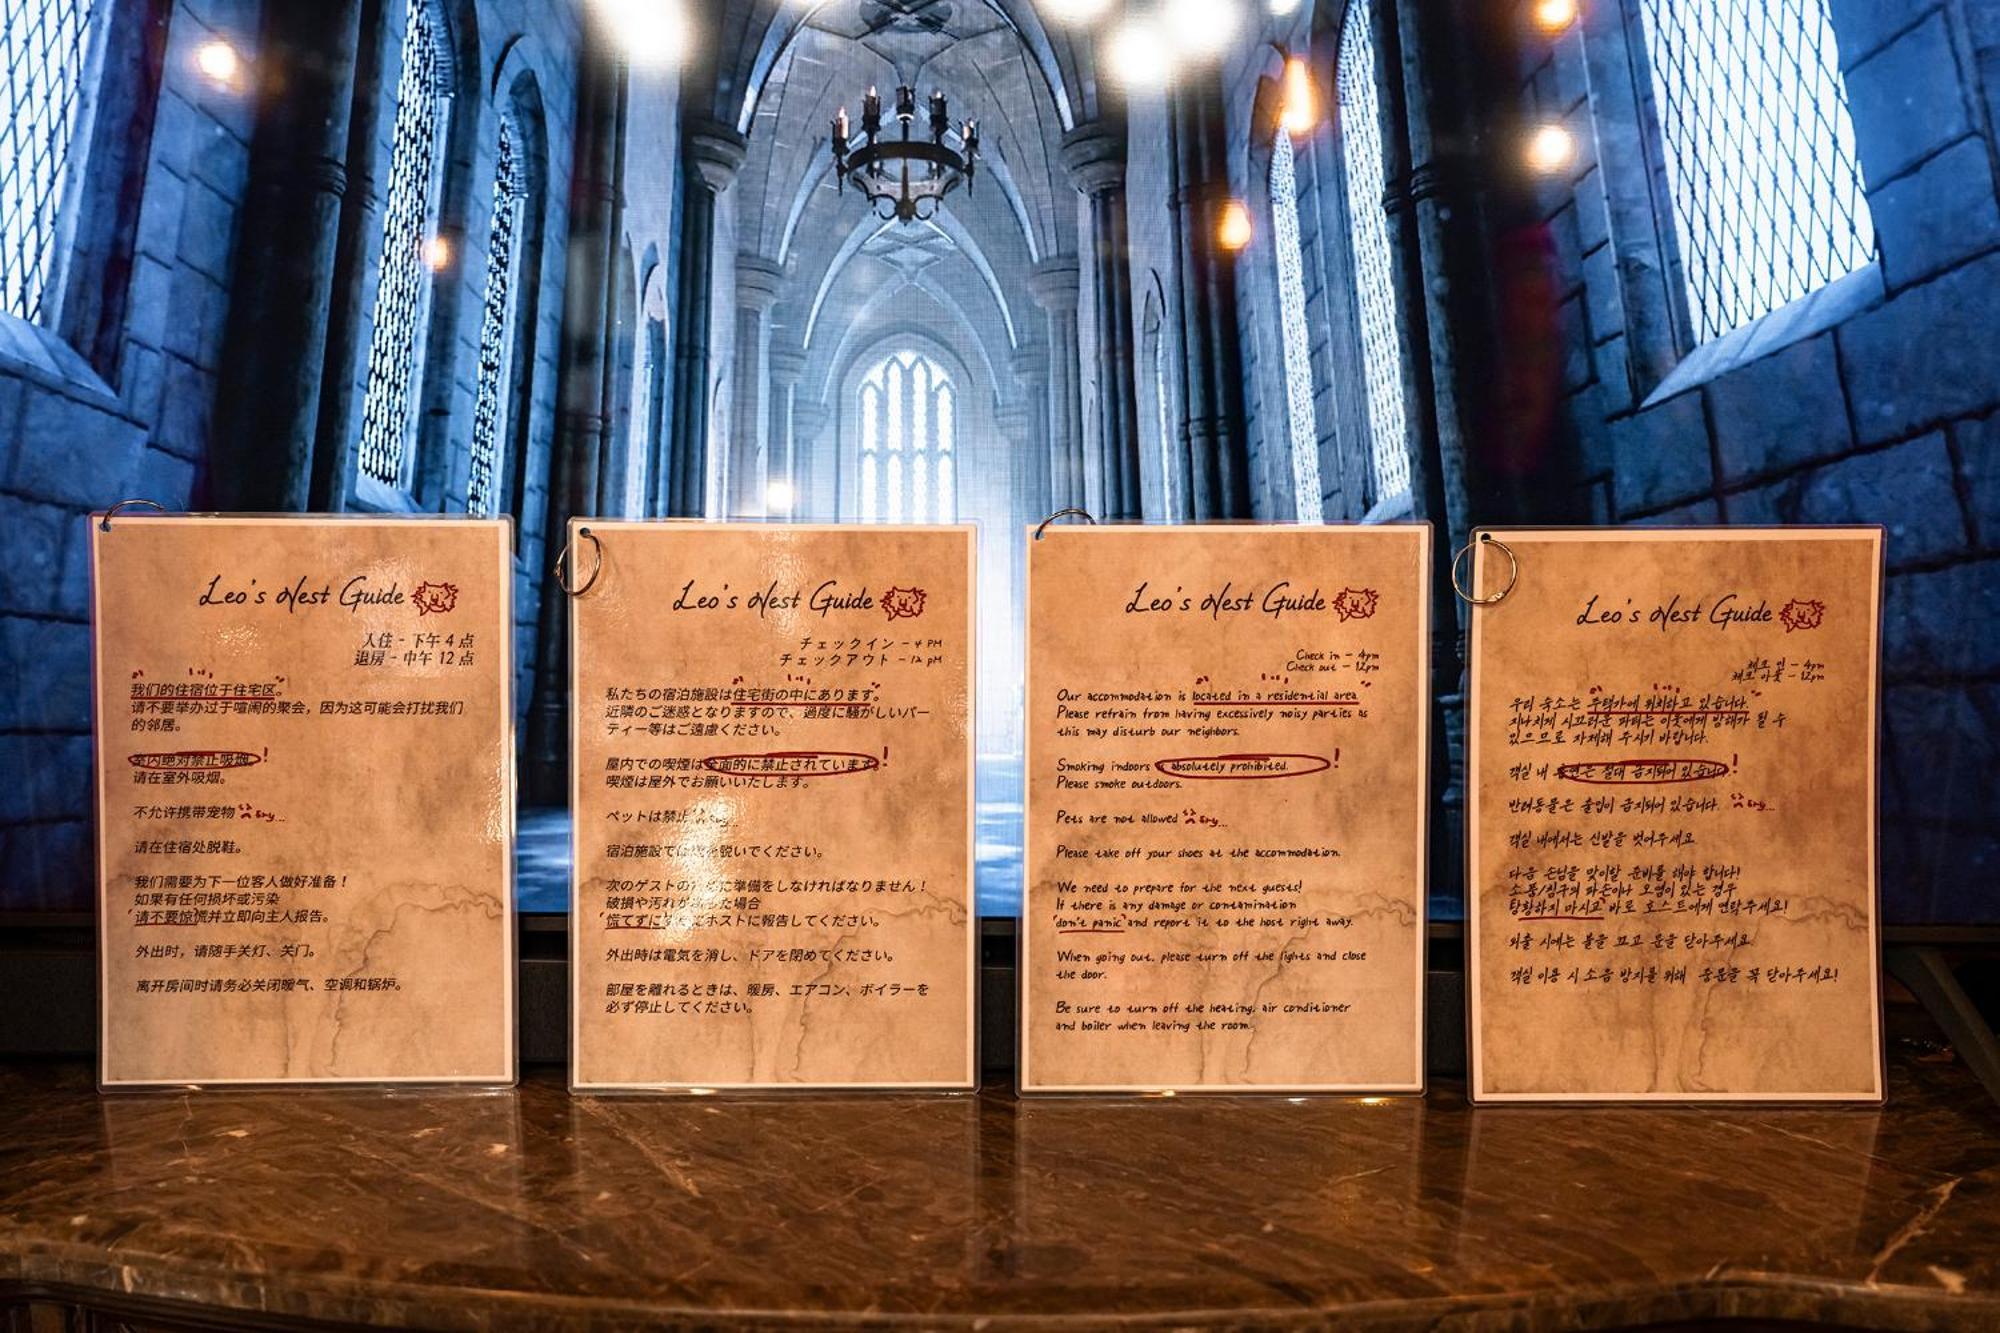 Leo's Nest Guide
入住 - 下午 4 点
退房 - 中午 12 点
我们的住宿位于住宅区。
请不要举办过于喧闹的聚会，因为这可能会打扰我们
的邻居。
室内绝对禁止吸烟。!
请在室外吸烟。
不允许携带宠物
请在住宿处脱鞋。
我们需要为下一位客人做好准备！
如果有任何损坏或污染
‘请不要惊慌并立即向主人报告。
外出时，请随手关灯、关门。
离开房间时请务必关闭暖气、空调和锅炉。
Leo's Nest Guide
チェックイン - 4 PM
チェックアウト - 12 PM
私たちの宿泊施設は住宅街の中にあります。
近隣のご迷惑となりますので、過度に騒がしいパー
ティー等はご遠慮ください。
屋内での喫煙は全面的に禁止されています。!
喫煙は屋外でお願いいたします。
ペットは禁止
宿泊施設では 脱いでください。
次のゲストの 準備をしなければなりません！
破損や汚れが 場合
‘慌てずに ホストに報告してください。
外出時は電気を消し、ドアを閉めてください。
部屋を離れるときは、暖房、エアコン、ボイラーを
必ず停止してください。
Leo's Nest Guide
Check in - 4pm
Check out - 12pm
Our accommodation is located in a residential area.
Please refrain from having excessively noisy parties as
this may disturb our neighbors.
Smoking indoors is absolutely prohibited. !
Please smoke outdoors.
Pets are not allowed
Please take off your shoes at the accommodation.
We need to prepare for the next guests!
If there is any damage or contamination
‘don't panic’ and report it to the host right away.
When going out, please turn off the lights and close
the door.
Be sure to turn off the heating, air conditioner
and boiler when leaving the room.
Leo's Nest Guide
체크 인 - 4pm
체크 아웃 - 12pm
우리 숙소는 주택가에 위치하고 있습니다.
지나치게 시끄러운 파티는 이웃에게 방해가 될 수
있으므로 자제해 주시기 바랍니다.
객실 내 흡연은 절대 금지되어 있습니다!
반려동물은 출입이 금지되어 있습니다.
객실 내에서는 신발을 벗어주세요.
다음 손님을 맞이할 준비를 해야 합니다!
소품/침구의 파손이나 오염이 있는 경우
당황하지 마시고’ 바로 호스트에게 연락주세요!
외출 시에는 불을 끄고 문을 닫아주세요.
객실 이용 시 소음 방지를 위해 중문을 꼭 닫아주세요!